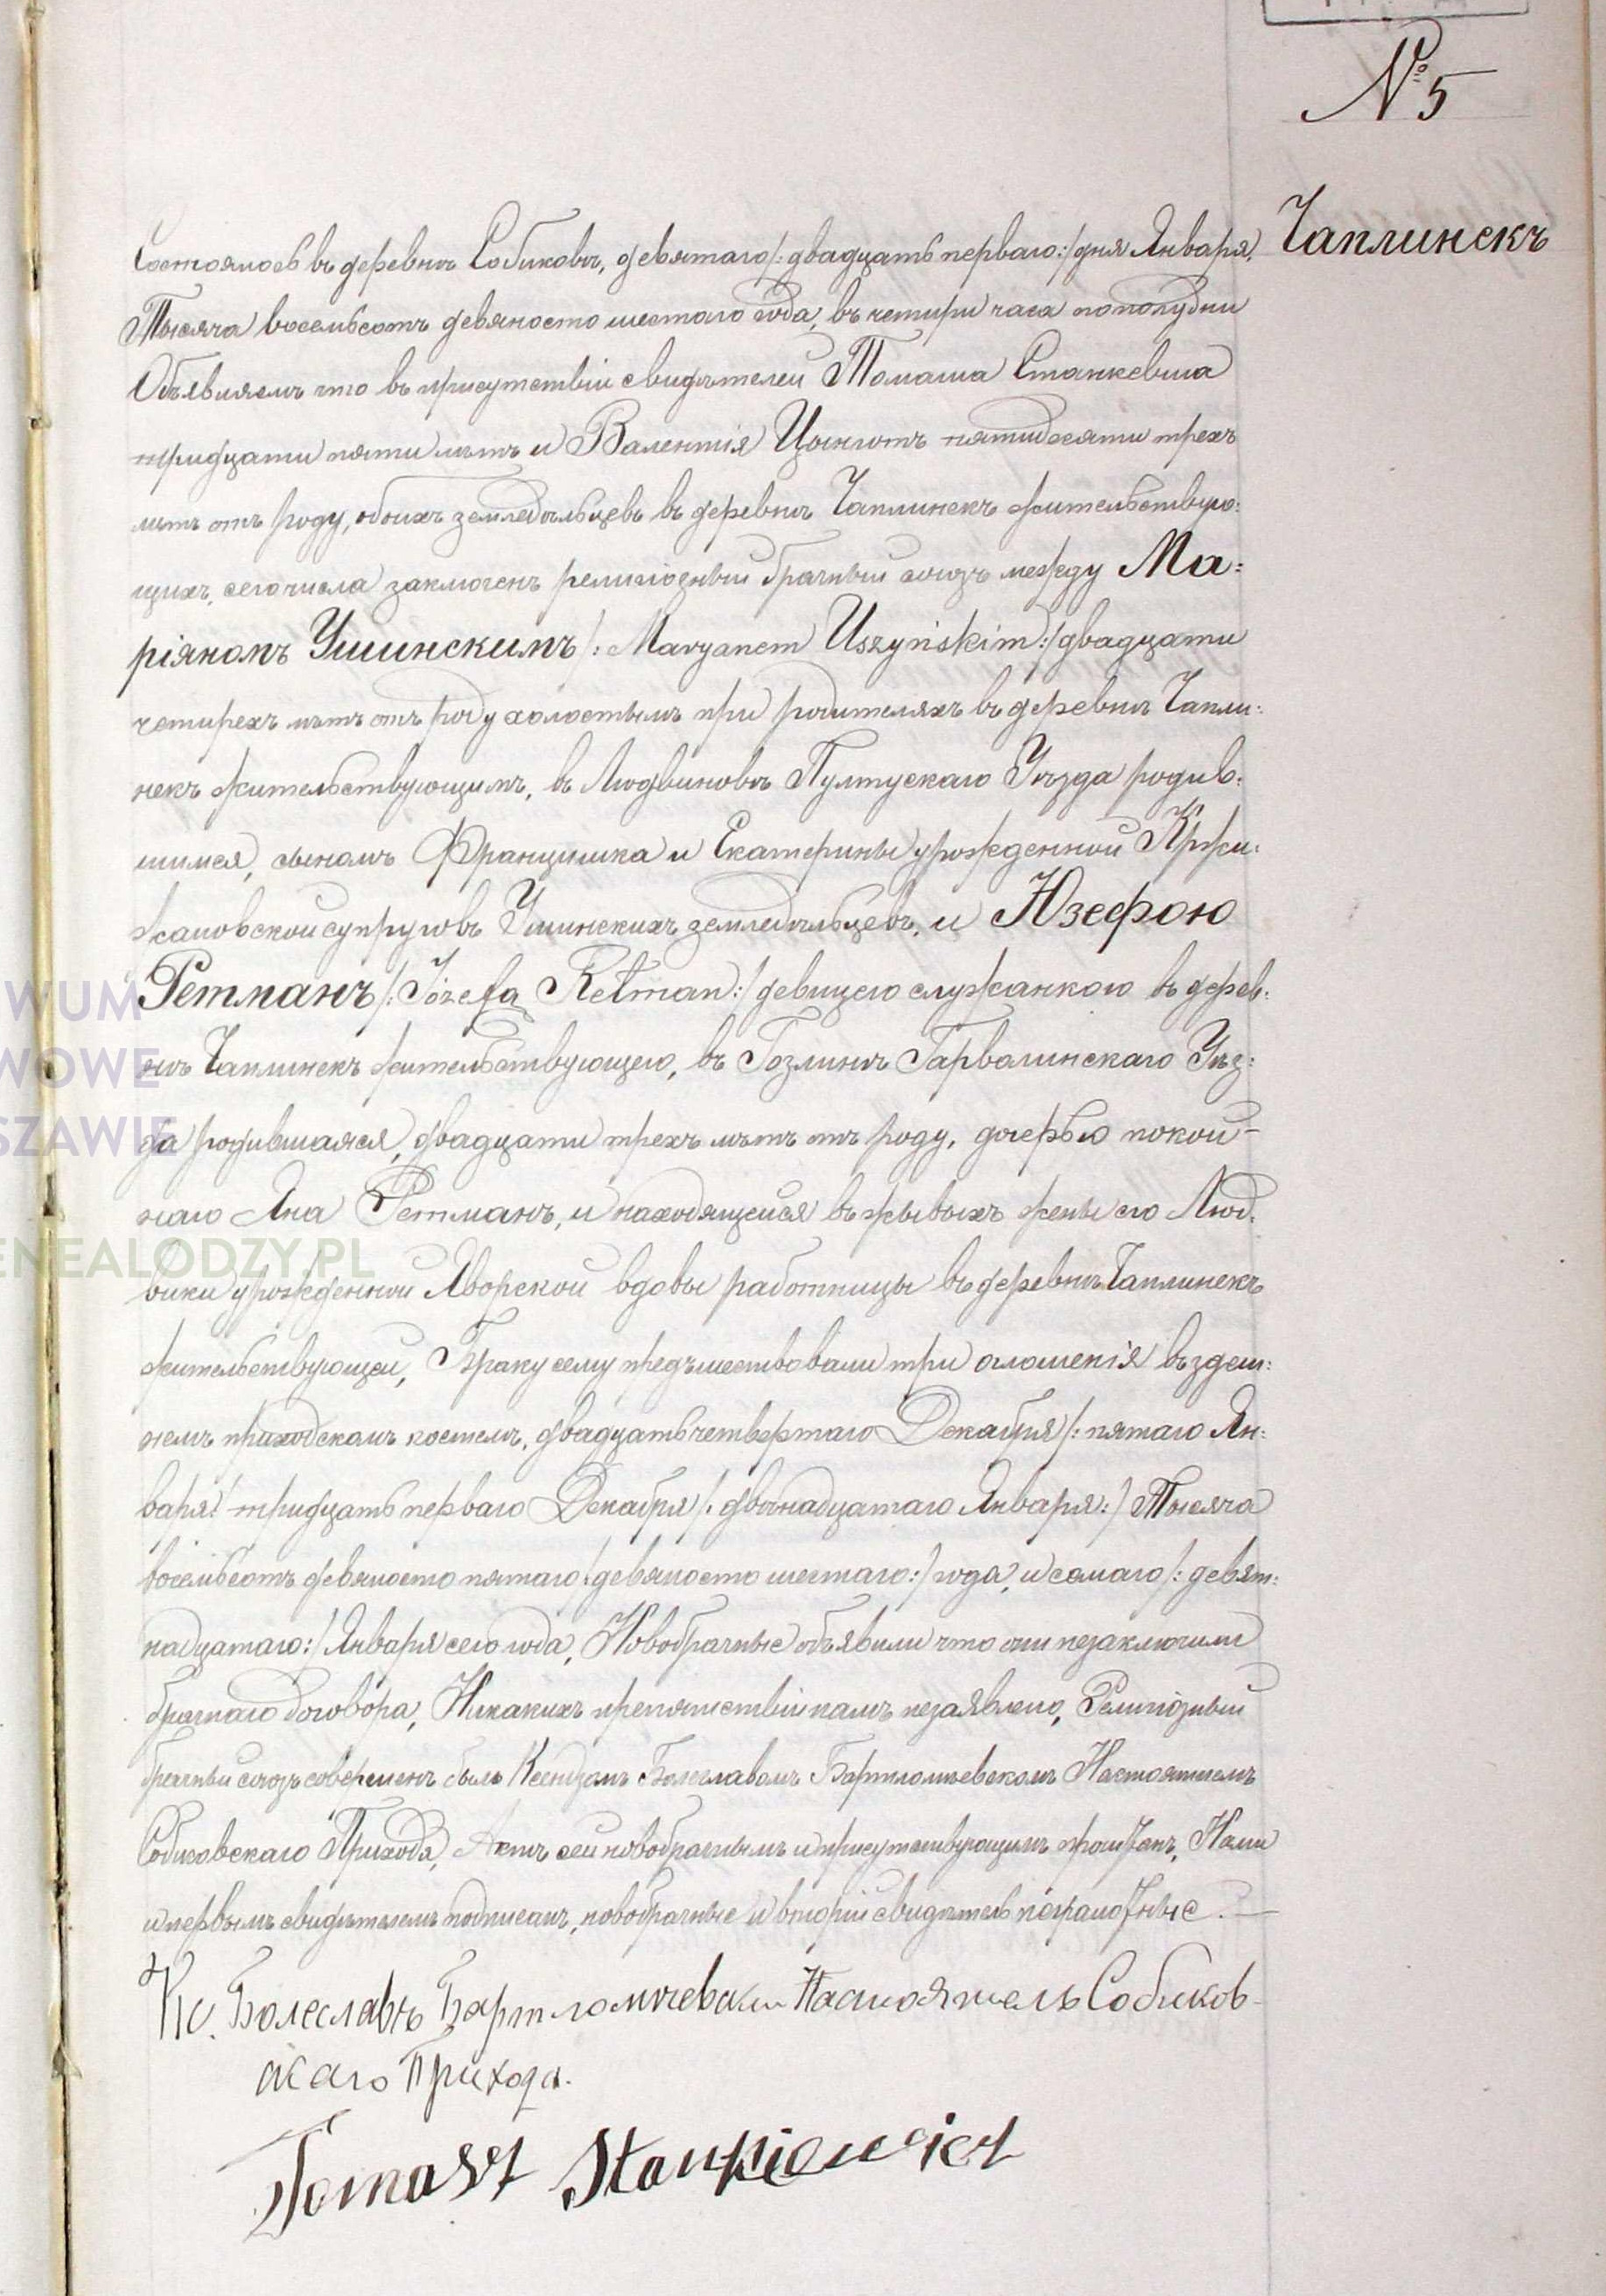 № 5
Чаплинекъ
Состоялось въ деревнѣ Собиковѣ, девятаго /: двадцать перваго :/ дня Января,
Тысяча восемьсотъ девяносто шестаго года, въ четыри часа пополудни
Объявляемъ что въ присутствіи свидѣтелей Томаша Станкевича
тридцати пяти лѣтъ и Валентія пятидесяти трехъ
лѣтъ отъ роду, обоихъ земледѣльцевъ въ деревнѣ Чаплинекъ жительствую:
щихъ, сего числа заключенъ религіозный брачный союзъ между Ма:
ріяномъ Ушинскимъ /: Maryanem Uszyńskim :/ двадцати
четырехъ лѣтъ отъ роду холостымъ при родителяхъ въ деревнѣ Чапли:
некъ жительствующимъ, въ Людвиновѣ Пултускаго Уѣзда родив:
шимся, сыномъ Францишка и Екатерины урожденной Кржи:
жановской супруговъ Ушинскихъ земледѣльцевъ, и Юзефою
Ретманъ /: Józefa Retman :/ девицею служанкою въ дерев:
нѣ Чаплинекъ жительствующею, въ Гозлинѣ Гарволинскаго Уѣз:
да родившаяся, двадцати трехъ лѣтъ отъ роду, дочерью покой-
наго Яна Ретманъ, и находящейся въ живыхъ жены его Люд:
вики урожденной Яворской вдовы работницы въ деревнѣ Чаплинекъ
жительствующей, Браку сему предъшествовали три оглошенія въ здеш:
немъ приходскомъ костелѣ, двадцать четвертаго Декабря /: пятаго Ян:
варя :/ тридцать перваго Декабря /: двѣнадцатаго Января :/ Тысяча
восемьсотъ девяносто пятаго /: девяносто шестаго :/ года, и семаго /: девят:
надцатаго :/ Января сего года, Новобрачные объявили что они незаключили
брачнаго договора, Никакихъ препятствій намъ незаявлено, Религіозный
брачный союзъ совершенъ былъ Ксендзомъ Болеславомъ Бартломѣевскомъ Настоятелемъ
Собиковскаго Прихода, Актъ сей новобрачнымъ и присутствующимъ прочитанъ, Нами
и первымъ свидѣтелемъ подписанъ, новобрачные и вторій свидѣтель неграмотные. —
Кс. Болеславъ Бартломѣевски Настоятель Собиков-
скаго Прихода.
Tomasz Stankiewicz
WUM
WOWE
SZAWIE
ENEALODZY.PL